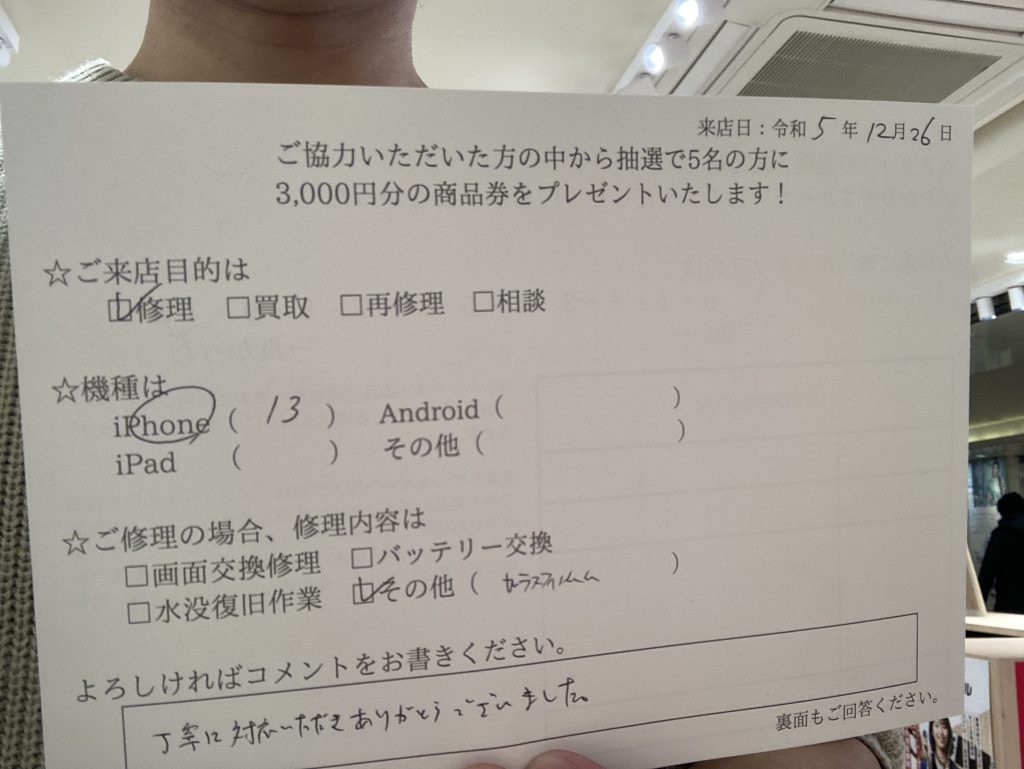 来店日：令和 5 年 12月26日
ご協力いただいた方の中から抽選で5名の方に
3,000円分の商品券をプレゼントいたします！
☆ご来店目的は
☑修理 □買取 □再修理 □相談
☆機種は
iPhone（ 13 ） Android（ ）
iPad （ ） その他（ ）
☆ご修理の場合、修理内容は
□画面交換修理 □バッテリー交換
□水没復旧作業 ☑その他（ ガラスフィルム ）
よろしければコメントをお書きください。
丁寧に対応いただきありがとうございました。
裏面もご回答ください。